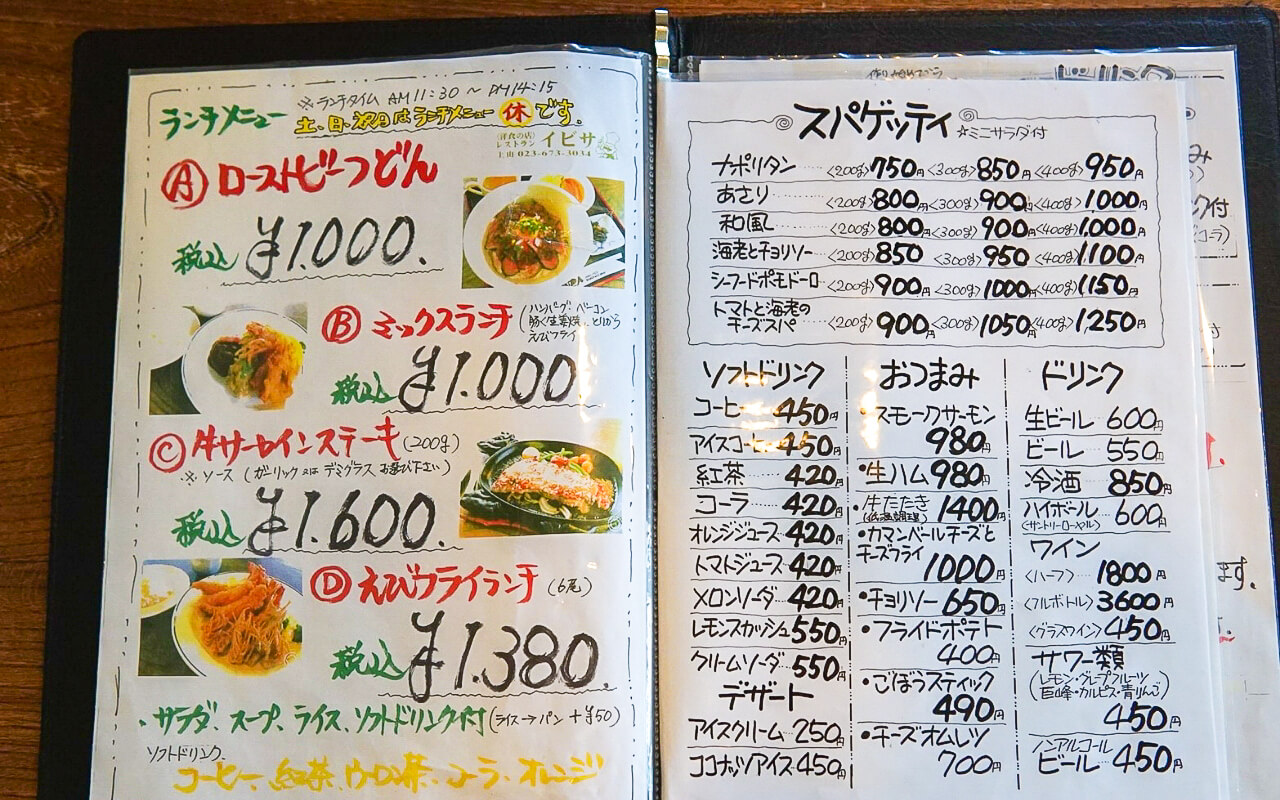 ランチメニュー
※ランチタイム AM11:30 〜 PM14:15
土、日、祝日はランチメニュー 休 です。
(洋食の店)
レストラン イビサ
上山 023-673-3034
Ⓐ ローストビーフどん
税込 ¥1.000.
Ⓑ ミックスランチ
(ハンバーグ・ベーコン
豚く生姜焼、とりから
えびフライ
税込 ¥1.000
Ⓒ 牛サーロインステーキ (200g)
※ソース (ガーリック又はデミグラス お選び下さい)
税込 ¥1.600.
Ⓓ えびフライランチ (6尾)
税込 ¥1.380.
・サラダ、スープ、ライス、ソフトドリンク付 (ライス→パン +¥50)
ソフトドリンク.
コーヒー、紅茶、ウーロン茶、コーラ、オレンジ
スパゲッティ ☆ミニサラダ付
ナポリタン <200g>750円<300g>850円<400g>950円
あさり <200g>800円<300g>900円<400g>1.000円
和風 <200g>800円<300g>900円<400g>1.000円
海老とチョリソー <200g>850 <300g>950<400g>1.100円
シーフードポモドーロ <200g>900円<300g>1000円<400g>1150円
トマトと海老の
チーズスパ <200g>900円<300g>1050円<400g>1,250円
ソフトドリンク
コーヒー 450円
アイスコーヒー 450円
紅茶 420円
コーラ 420円
オレンジジュース 420円
トマトジュース 420円
メロンソーダ 420円
レモンスカッシュ 550円
クリームソーダ 550円
デザート
アイスクリーム 250円
ココナッツアイス 450円
おつまみ
・スモークサーモン
980円
・生ハム 980円
・牛たたき
(低温調理) 1400円
・カマンベールチーズと
チーズフライ
1000円
・チョリソー 650円
・フライドポテト
400円
・ごぼうスティック
490円
・チーズオムレツ
700円
ドリンク
生ビール 600円
ビール 550円
冷酒 850円
ハイボール 600円
<サントリーローヤル>
ワイン
<ハーフ> 1800円
<フルボトル> 3600円
<グラスワイン> 450円
サワー類
(レモン・グレープフルーツ
巨峰・カルピス・青りんご)
450円
ノンアルコール
ビール 450円
付
ます。